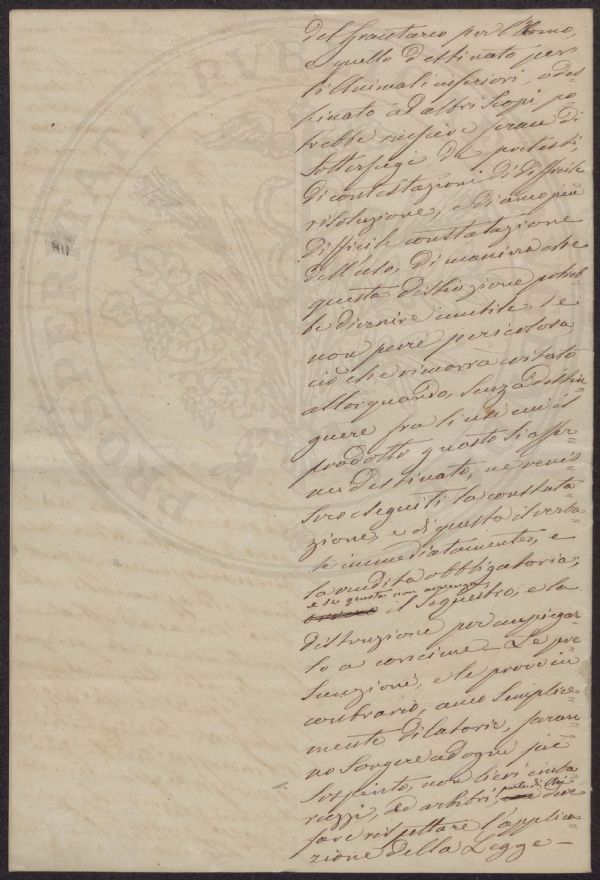 del fruttario per l'Uomo,
e quello destinato per
li Animali inferiori, o des=
tinato ad altri scopi po=
trebbe riuscire grave di
Sotterfugi, di pretesti,
di contestazioni di difficile
risoluzione, e di anco più
difficile constatazione
dell'uso, di maniera che
questa distinzione potreb=
be divenire inutile, se
non pure pericolosa
ciò che rimarrà evitato
allorquando, senza distin=
guere fra li usi cui il
prodotto guasto si affer=
ma destinato, ne venis=
sero eseguiti la constata=
zione, e di questa il verba=
le immediatamente, e
la vendita obbligatoria;
e se questa non avvenga
il sequestro, e la
distruzione per impiegar=
lo a concime – Le pre
sunzioni, e le prove in
contrario, anco semplice=
mente dilatorie, faran=
no sorgere ad ogni piè
sospinto, non lievi imba=
razzi, ed arbitri, parte di chi deve
fare rispettare l'applica=
zione della Legge –
PROSPERITATI PVB